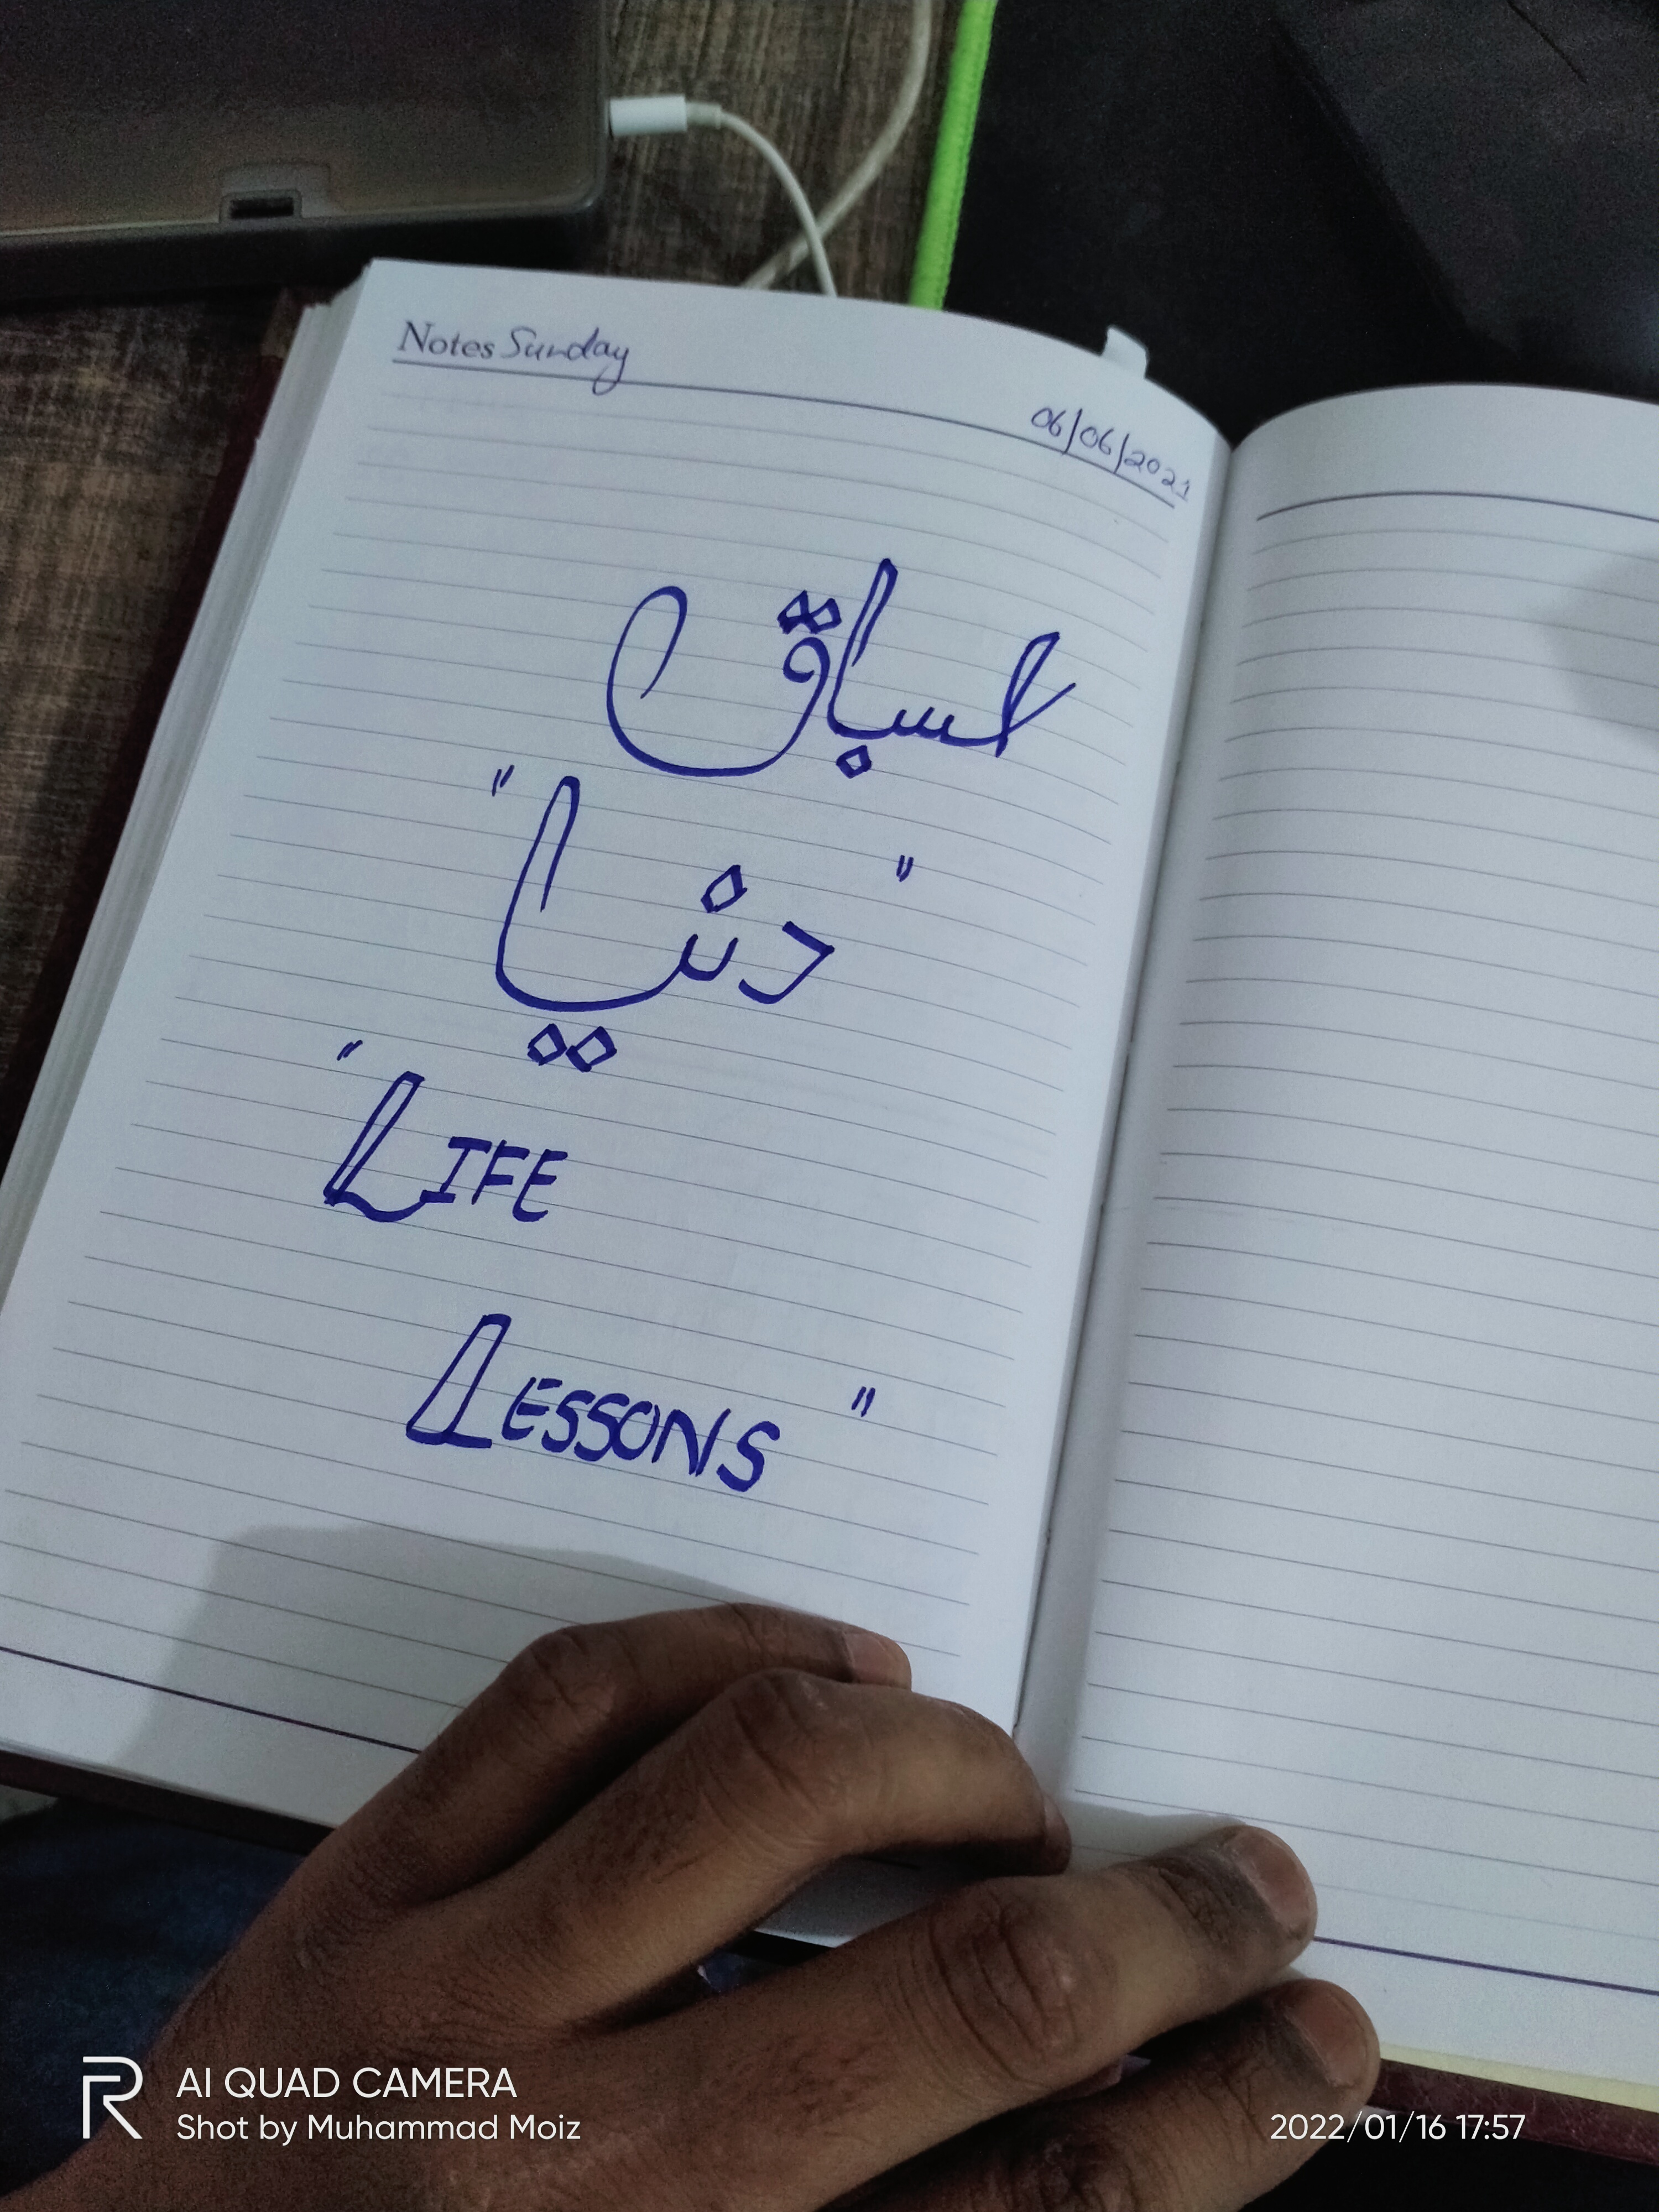 Notes Sunday
06/06/2021
اسباق
"دنیا"
"LIFE
LESSONS"
AI QUAD CAMERA
Shot by Muhammad Moiz
2022/01/16 17:57